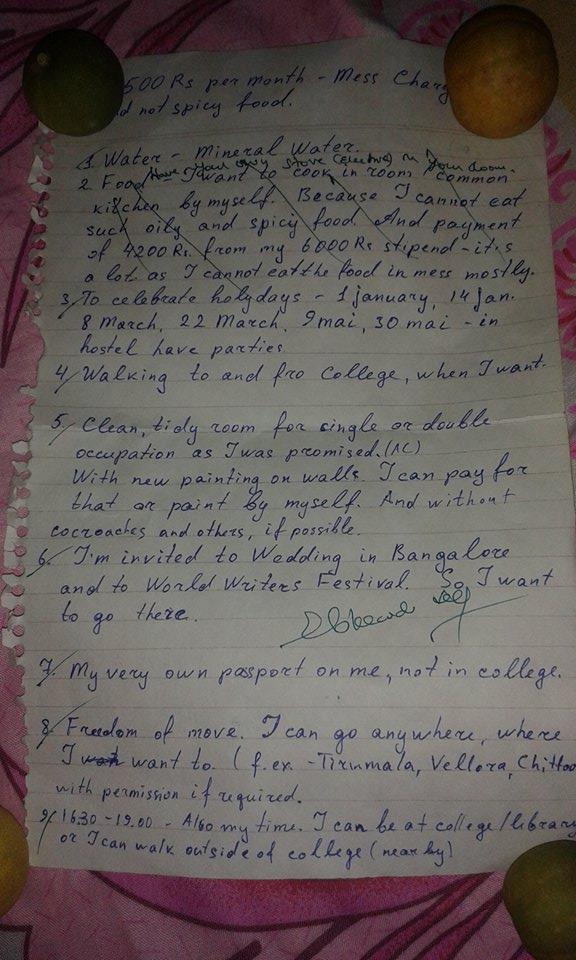 500 Rs per month - Mess Charg
d not spicy food.
1. Water - Mineral Water.
Have your own stove (electric) in your room.
2 Food - I want to cook in room common
kitchen by myself. Because I cannot eat
such oily and spicy food. And payment
of 4200 Rs. from my 6000 Rs stipend - it's
a lot as I cannot eat the food in mess mostly.
3. To celebrate holydays - 1 january, 14 jan.
8 March, 22 March, 9 mai, 30 mai - in
hostel have parties
4. Walking to and fro College, when I want.
5. Clean, tidy room for single or double
occupation as I was promised. (AC)
With new painting on walls. I can pay for
that or paint by myself. And without
cocroaches and others, if possible.
6. I'm invited to Wedding in Bangalore
and to World Writers Festival. So I want
to go there.
self
7. My very own passport on me, not in college.
8. Freedom of move. I can go anywhere, where
I want to. (f.ex. - Tirumala, Vellora, Chittoo
with permission if required.
9. 16.30 - 19.00 - Also my time. I can be at college/library
or I can walk outside of college (near by)